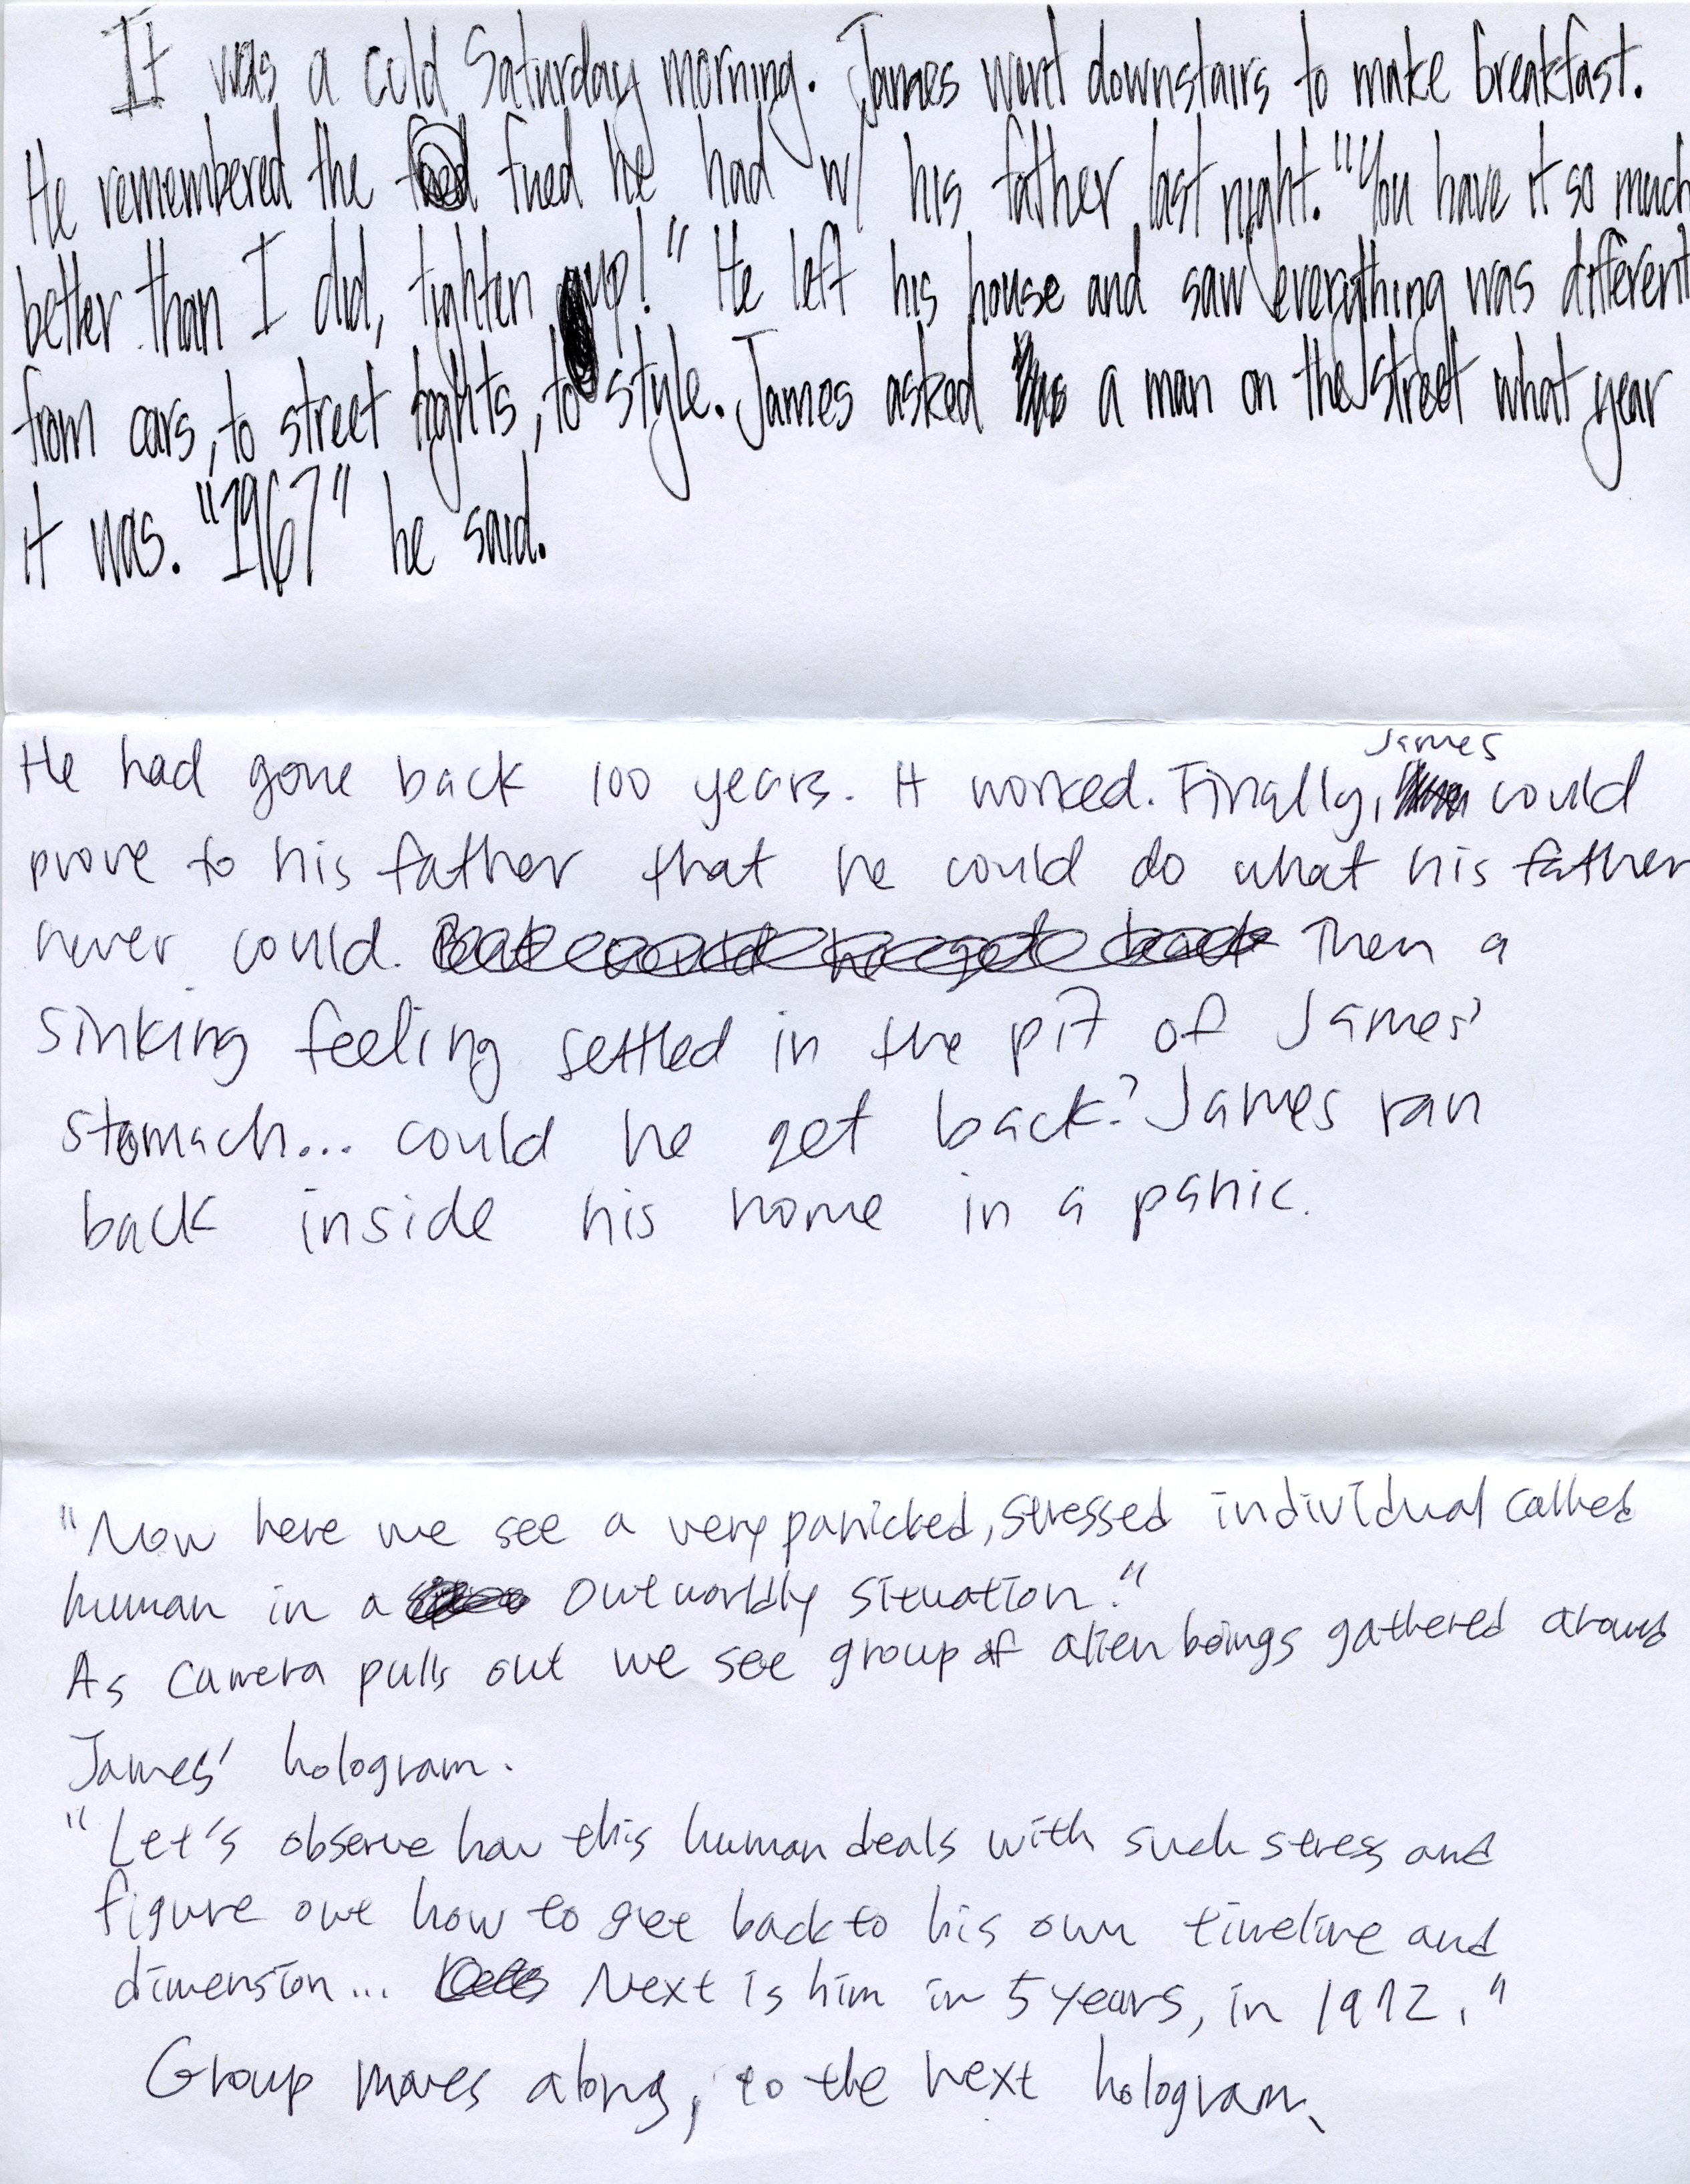 It was a cold Saturday morning. James went downstairs to make breakfast.
He remembered the fued he had w/ his father last night. "You have it so much
better than I did, tighten up!" He left his house and saw everything was different
from cars, to street lights, to style. James asked a man on the street what year
it was. "1967" he said.
He had gone back 100 years. It worked. Finally, James could
prove to his father that he could do what his father
never could. Then a
sinking feeling settled in the pit of James'
stomach... could he get back? James ran
back inside his home in a panic.
"Now here we see a very panicked, stressed individual called
human in a outworldly situation."
As camera pulls out we see group of alien beings gathered around
James' hologram.
"Let's observe how this human deals with such stress and
figure out how to get back to his own timeline and
dimension... Next is him in 5 years, in 1972."
Group moves along, to the next hologram.